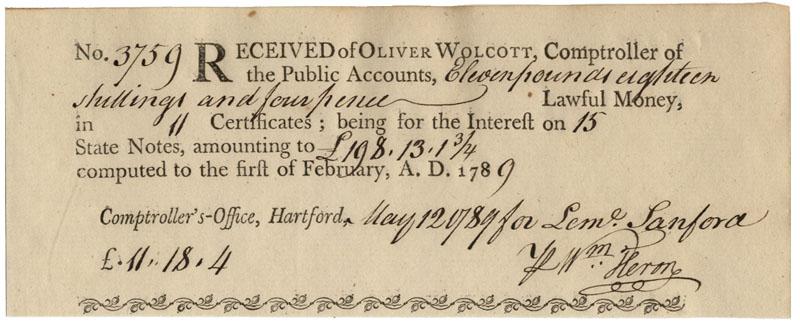 No. 3759 RECEIVED of OLIVER WOLCOTT, Comptroller of
the Public Accounts, Eleven pounds eighteen
shillings and four pence Lawful Money,
in 11 Certificates; being for the Intereſt on 15
State Notes, amounting to £198.13.1 3/4
computed to the firſt of February, A. D. 1789
Comptroller's-Office, Hartford, May 12 1789 for Lemˡ. Sanford
£.11.18.4 ⅌ Wᵐ. Heron